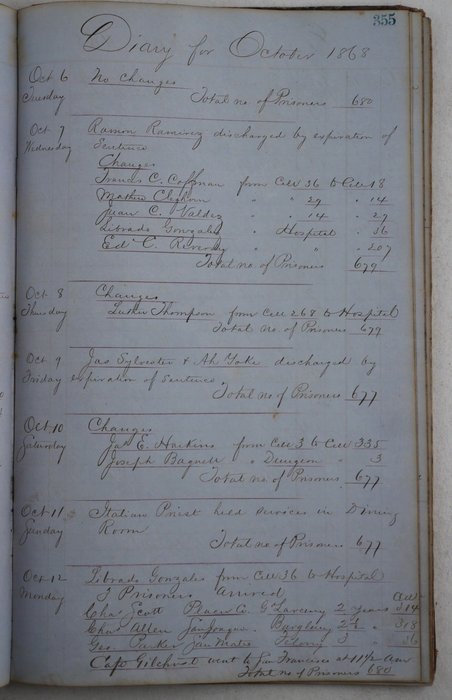 355
Diary for October 1868
Oct 6 No Changes
Tuesday Total no. of Prisoners 680
Oct 7 Ramon Ramirez discharged by expiration of
Wednesday Sentence
Changes
Francis C. Coffman from Cell 36 to Cell 18
Mathew Cleghorn " " 29 " 14
Juan C. Valdez " " 14 " 29
Librado Gonzales " Hospital " 36
Ed C. " " " 207
Total no of Prisoners 679
Oct 8 Changes
Thursday Luther Thompson from Cell 268 to Hospital
Total no. of Prisoners 679
Oct 9 Jas Sylvester & Ah Yoke discharged by
Friday expiration of Sentence.
Total no. of Prisoners 677
Oct 10 Changes
Saturday Jas E. Harkins from Cell 3 to Cell 335
Joseph " Dungeon " 3
Total no. of Prisoners 677
Oct 11 Italian Priest held services in Dining
Sunday Room
Total no of Prisoners 677
Oct 12 Librado Gonzales from Cell 36 to Hospital
Monday 3 Prisoners Arrived Cell
Chas Scott Placer Co. Gd Larceny 2 years 314
Chas Allen San Joaquin Burglary 2½ " 318
Geo Parker San Mateo Felony 3 " 36
Capt Gilchrist went to San Francisco at 11½ Am
Total no of Prisoners 680